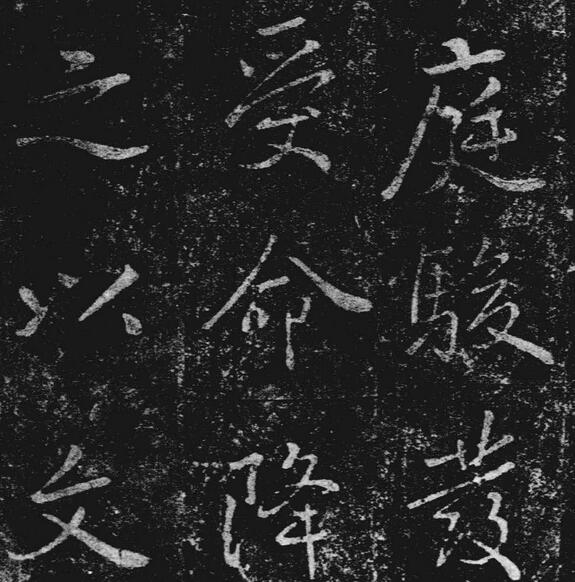 庭駿發
受命降
之以文